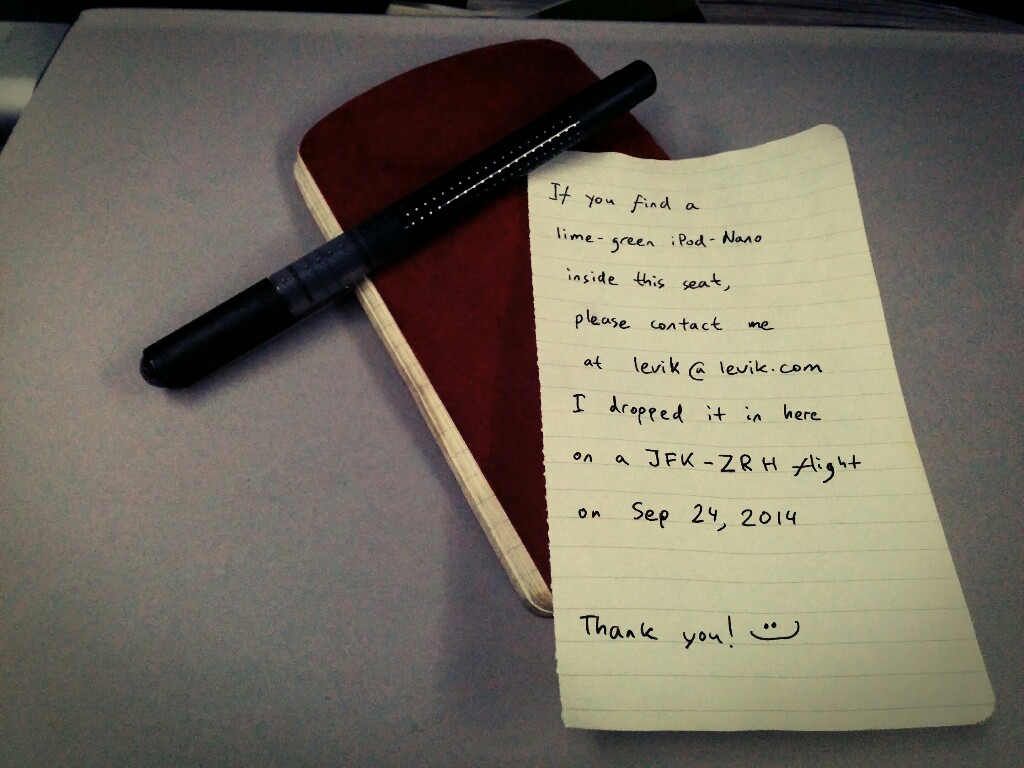 If you find a
lime-green iPod-Nano
inside this seat,
please contact me
at levik@levik.com
I dropped it in here
on a JFK-ZRH flight
on Sep 24, 2014
Thank you!